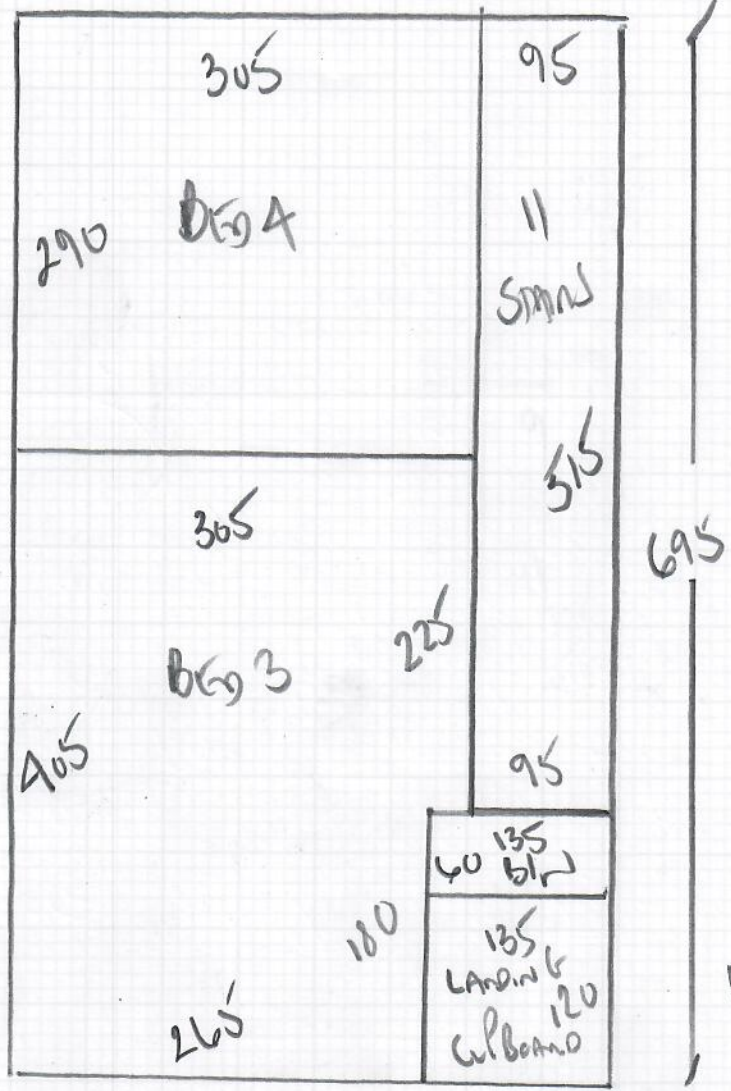 305
95
290
BED 4
11
STAIRS
515
305
695
225
BED 3
405
95
135
60 BIN
180
135
LANDING
120
CUPBOARD
265